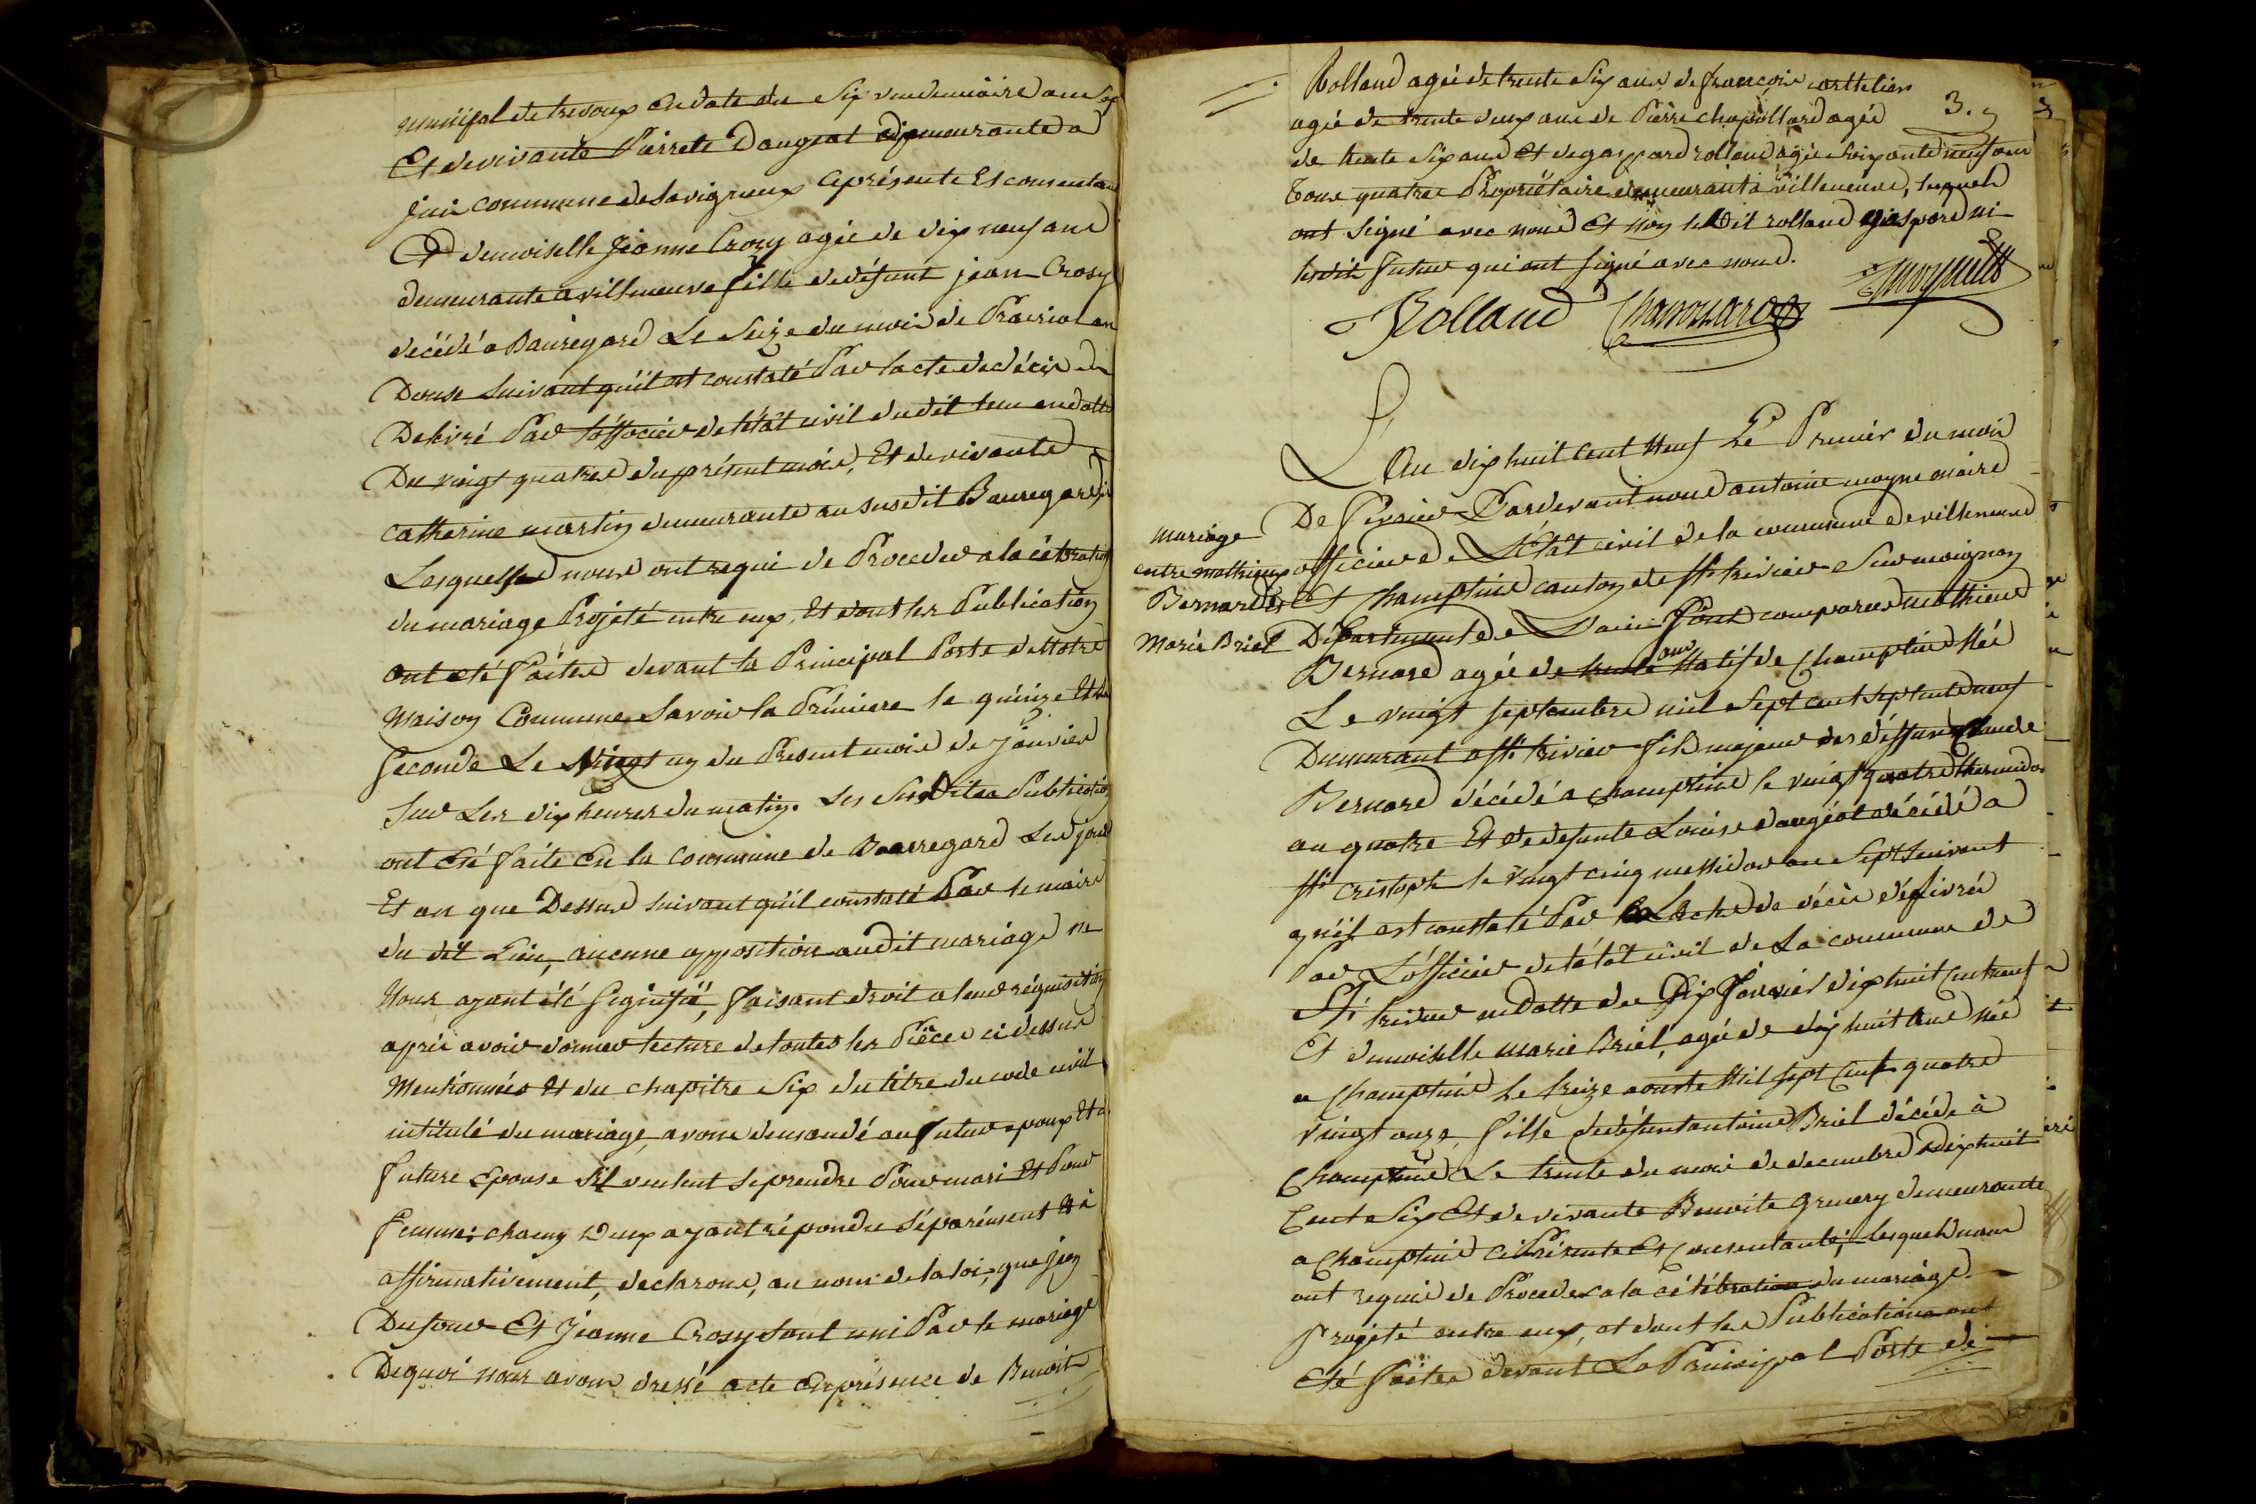 municipal de trevoux en date du Six vendemiaire an Sep
Et de vivante Pierrete Daugeat demeurante a
juis commune de Savigneux cy présente Et consentante
Et demoiselle Jeanne Crozy agée de dix neuf ans
demeurante a villeneuve fille de défunt jean Crosy
décédé a Bauregard Le Seize du mois de Prairial an
Douse suivant qu'il est constaté Par lacte de décès
Délivré Par lofficier de létat civil du dit lieu en datte
Du vingt quatre du présent mois, Et de vivante
catherine martin demeurante au susdit Bauregard
Lesquelles nous ont requi de Proceder a la célébration
du mariage Projeté entre eux, Et dont les Publication
ont été faites devant la Principal Porte de Notre
Maison Commune Savoir la Prémiere le quinze Et la
Seconde Le Vingt un du Present mois de janvier
Sur Les dix heures du matin. Les Susdites Publication
ont été faite En la Commune de Beauregard Les jour
Et an que Dessus suivant quil constaté Par le maire
du dit Lieu, aucune opposition audit mariage ne
Nous ayant été Signifié, faisant droit a leur réquisition
après avoir donner lecture de toutes les Pièces ci dessus
Mentionnées Et du chapitre Six du titre du code civil
intitulé du mariage, avons demandé au futur epoux Et a
future Epouse S'il veulent se prendre Pour mari Et Pour
femme: chacun d'eux ayant répondu séparément Et
affirmativement, declarons, au nom de la loi, que jean
Dufour Et Jeanne Crosy sont uni Par le mariage
De quoi nous avons dressé acte En présence de Benoit
Rolland agée de trente Six ans de françois
agée de trente deux ans de Pierre chapollard agée
3.
de trente Six ans Et de gaspard rolland agée Soixante neuf ans
Tous quatre Propriétaire demeurant a villeneuve, lesquels
ont Signé avec nous Et non le Dit rolland gaspard ni
lesdit futur qui ont signé avec nous.
Rolland
Lan dix huit Cent Neuf Le Premier du mois
De fevrier Pardevant nous antoine moyne maire
officier de Létat civil de la commune de villeneuve
mariage
entre mathieux
Bernard Et
Marie Briel
Et Champtein canton de St trivier Sur moignan
Département de Lain Sont comparus mathieu
Bernard agée de trente ans Natif de Champtein Née
Le vingt septembre mil Sept cent septente neuf
Demeurant a St trivier fils majeur des défunt Claude
Bernard décédé a champtein le vingt quatre thermidor
an quatre Et de defunte Louise daugeat décédé a
St Cristophe le vingt cinq messidor an Sept suivant
quil est constaté Par Lacte de décès délivrée
Par Lofficier de létat civil de La commune de
St trivier en datte du Six Janvier dix huit cent neuf
Et demoiselle marie Briel, agée de dix huit ans Née
a Champtein Le treize aouste Mil sept Cent quatre
vingt onze, fille de défunt antoine Briel décéde à
Champtein Le trente du mois de decembre dix huit
Cent Six Et de vivante Benoite demeurante
a Champtein ci Présente Et Consentante; Lesquels nous
ont requis de Proceder a la célébration du mariage
Projeté entre eux, et dont les Publications ont
Eté faites devant La Principal Porte de